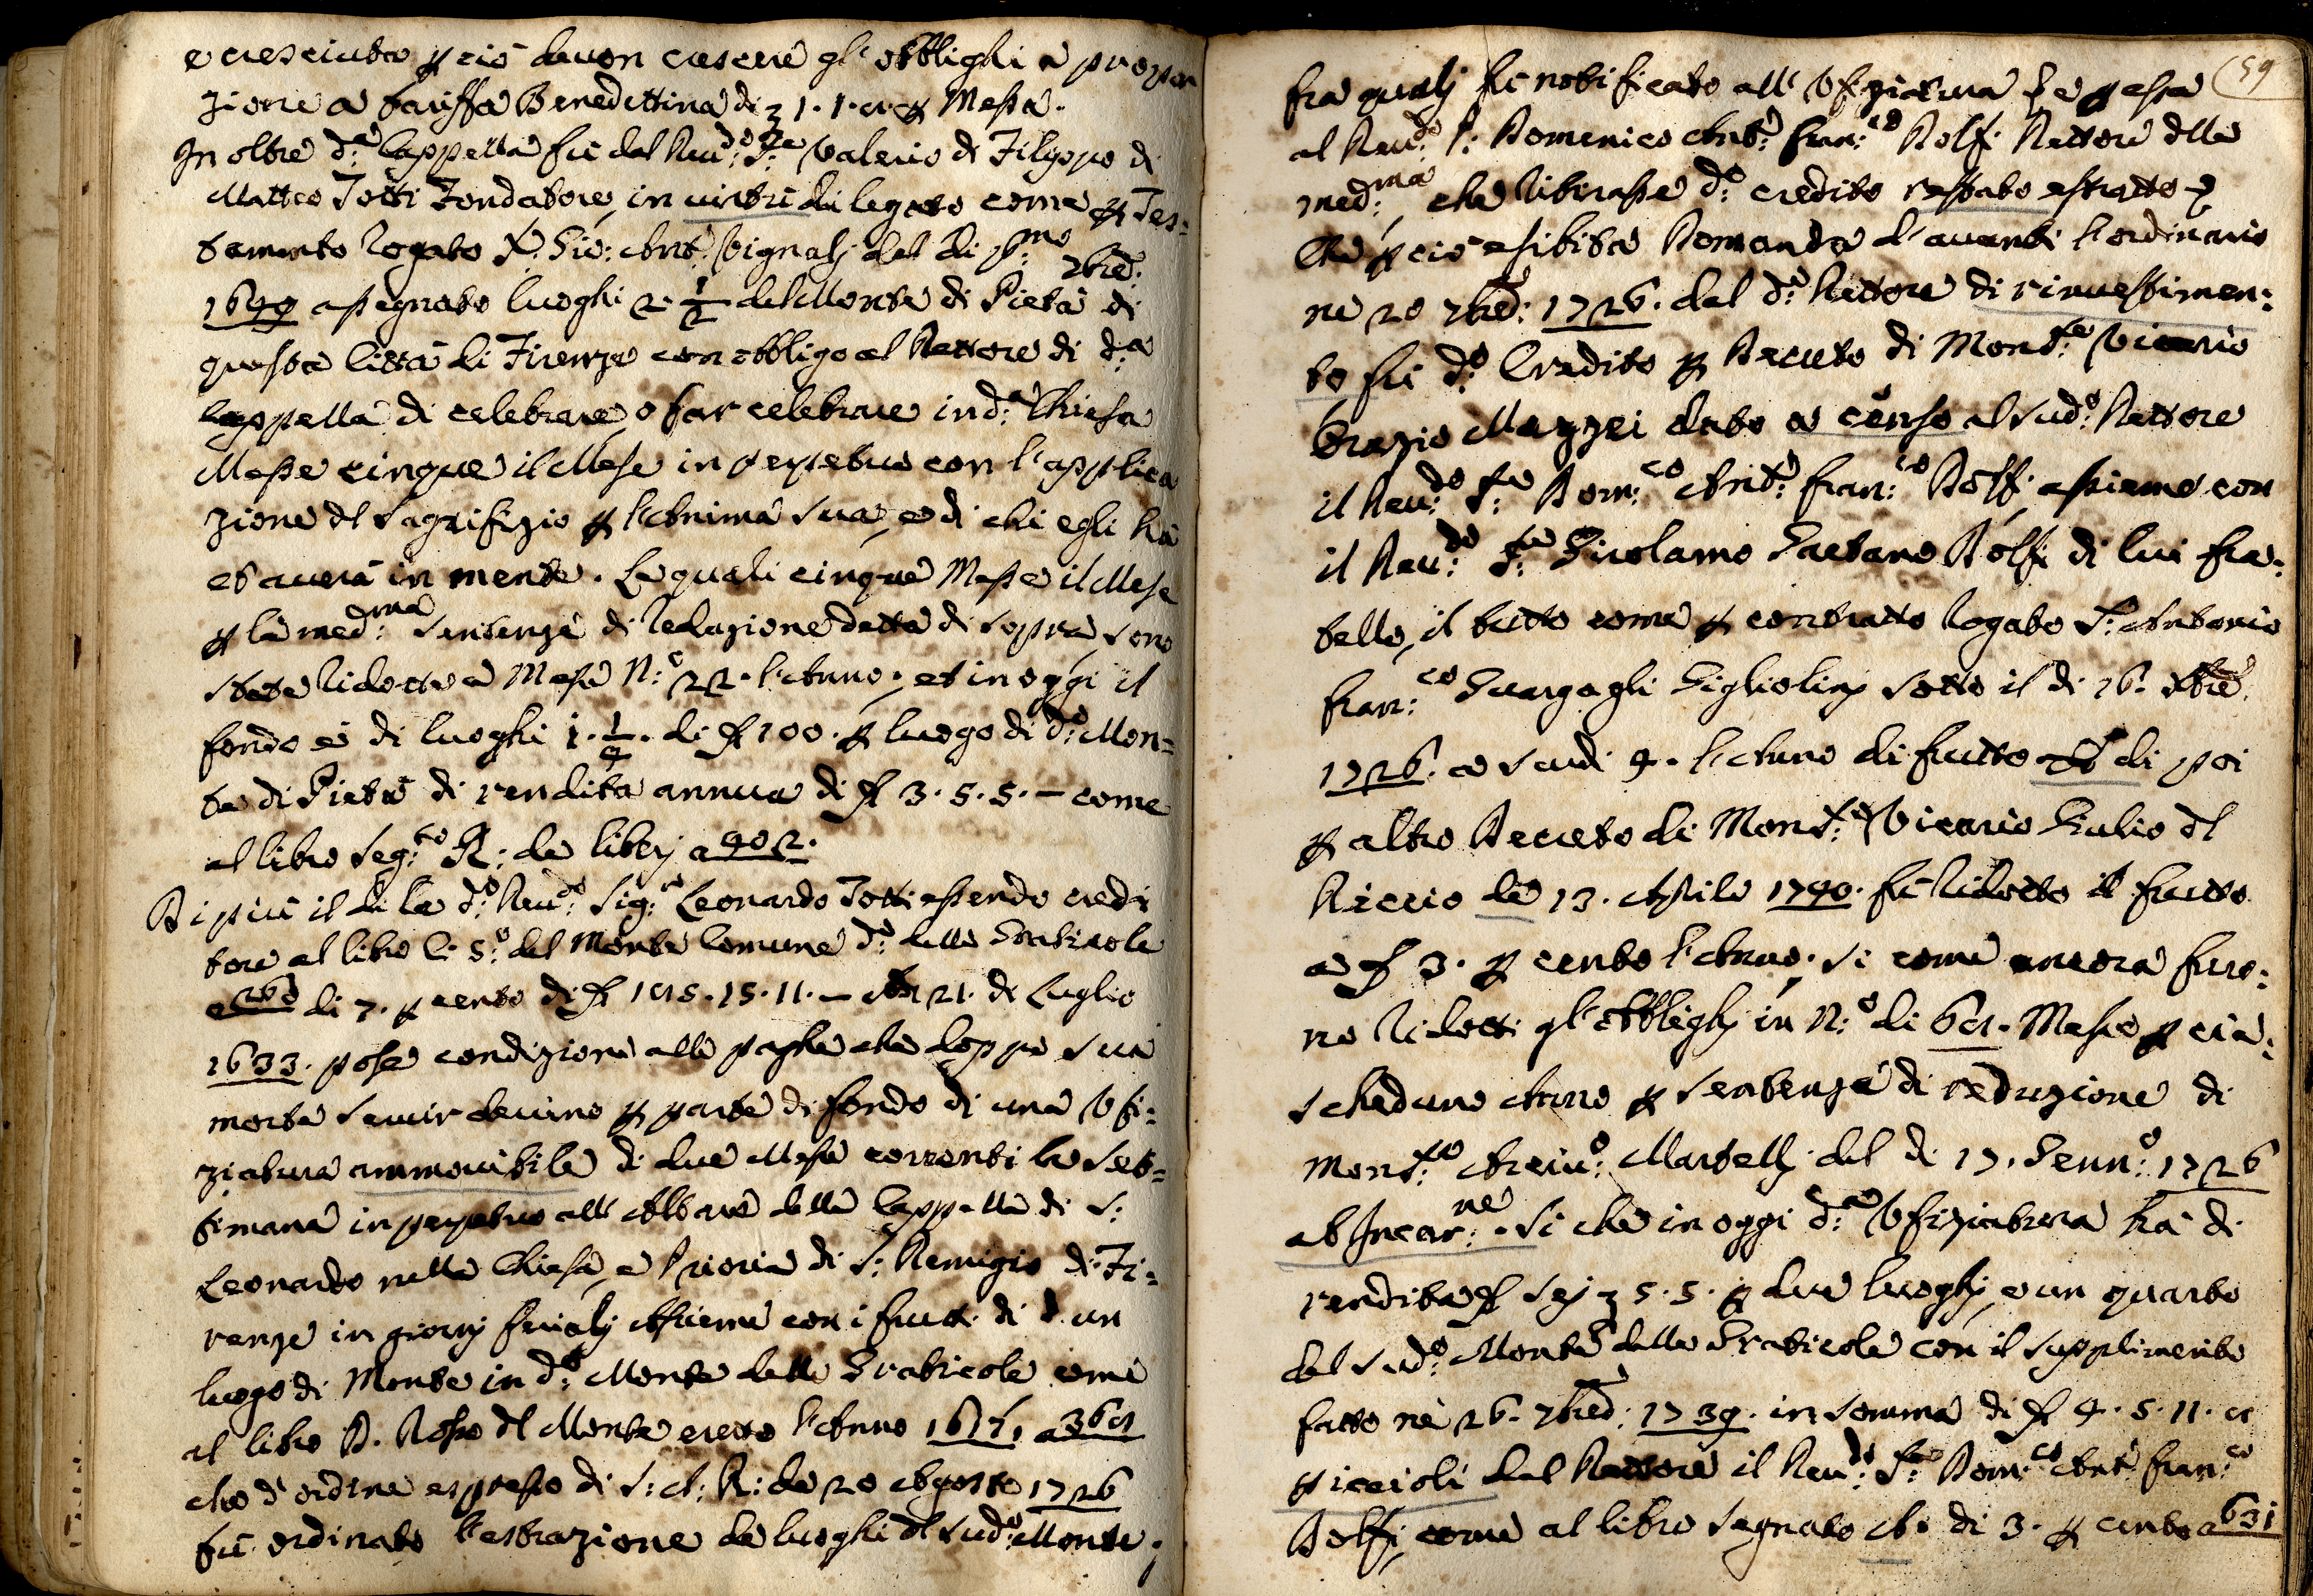 e cresciuta p ciò devon crescere gl'obblighi a propor
zione a tariffa Benedettina di 1. 1. p Messa.
In oltre d:ª Cappella fù dal Reu:do Valerio di Filippo di
Matteo Totti Fondatore, in virtù di legato come p Tes=
tamento rogato Gio: Ant: Vignalj del dì p:mo 7bre:
assegnato luoghi 2 1/2 del Monte di Pietà di
questa Città di Firenze con obbligo al Rettore di d:ª
Cappella di celebrare, o far celebrare in d:ª Chiesa
Messe cinque il Mese in perpetuo con l'applica
zione dl Sagrifizio p l'Anima sua, e di chi egli hà
et averà in mente. Le quali cinque Messe il Mese
p la med:ma Sentenza di reduzione detta di sopra sono
state ridotte a Messe N:º 22. l'Anno, et in oggi il
fondo è di luoghi 1. 1/4. di 100. p luogo di d:º Mon=
te di Pietà di rendita annua di 3. 5. 5. – come
al libro seg:to R: de liberj a 402.
Di più il dì la d:º Reu:º Sig:e Leonardo Totti essendo credi
tore al libro C. 5:º del Monte Comune d:º delle Graticole
a 260 di 7. p cento di 15. 11. – 21. di Luglio
1633. pose condizione alle paghe che doppo sua
morte servir devino p parte di fondo di una Ufi=
ziatura ammovibile di due Messe correnti la set=
timana in perpetuo all'Altare della Cappella di S:
Leonardo nella Chiesa, e Prioria di S: Remigio di Fi=
renze in giorni ferialj assieme con i frutti di d un
luogo di Monte in d:º Monte delle Graticole come
al libro D. Rosso dl Monte eretto l'Anno
che d'ordine espresso di S: A: R: de 20 Agosto 1726
fù ordinato l'estrazione de luoghi dl sud:º Monte.
59
fra qualj fù notificato all'Ufiziatura p essa
al Reu:do Domenico Ant: Fran:co Dolfi Rettore dlla
med:ma che librasse d:º credito restato estratto
Che p ciò esibita Domanda d'avanti l'ordinario
ne 20 7bre: 1726. dal d:º Rettore di rinvestimen:
to fù d:º Credito p Decreto di Mons:re Vicario
Orazio Mazzei dato a censo al sud:º Rettore
il Reu:do Dom:co Ant: Fran:co Dolfi assieme con
il Reu:do Girolamo Gaetano Dolfi di lui fra:
tello, il tutto come p contratto rogato Antonio
Fran:co Guargagli Gigliolinj sotto il dì 26. 8bre
1726. a scudi 4. l'Anno di frutto di poi
p altro Decreto di Mons:re Vicario Giulio dl
Riccio de 13. Aprile 1740. fù ridotto il frutto
a 3. p cento l'Anno. si come ancora furo:
no ridotti gl'obblighj in N:º di Messe p cia:
scheduno Anno p sentenza di reduzione di
Mons:re Arciu:º Martellj del dì 17. Genn:º 1726
ab Incar:ne. Si che in oggi d:ª Ufiziatura hà di
rendita sej 5. 5. p due luoghj, e un quarto
del sud:º Monte delle Graticole con il supplimento
fatto ne 26. 7bre: 1739. in somma di 4. 5. 11. e
piccioli dal Rettore il Reu:do Dom:co Ant: Fran:co
Dolfi, come al libro segnato A. di 3. p cento a 631